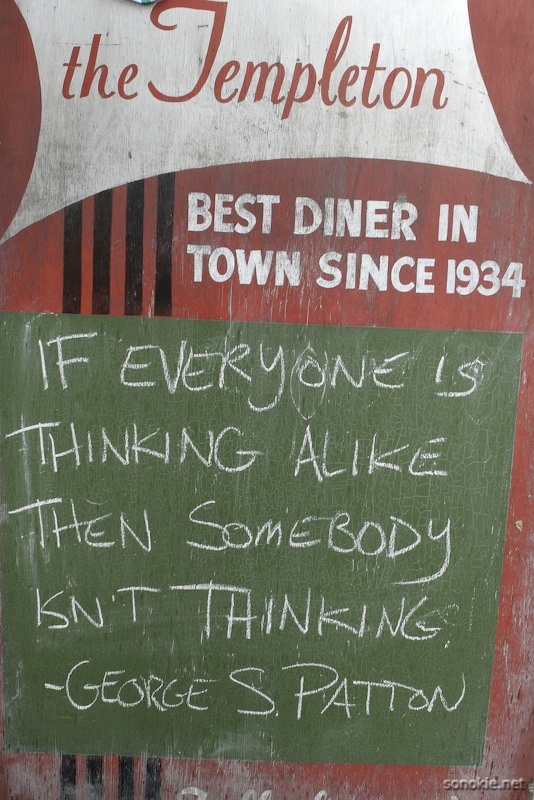 the Templeton
BEST DINER IN
TOWN SINCE 1934
IF EVERYONE IS
THINKING ALIKE
THEN SOMEBODY
ISN'T THINKING
-GEORGE S. PATTON
sonokie.net